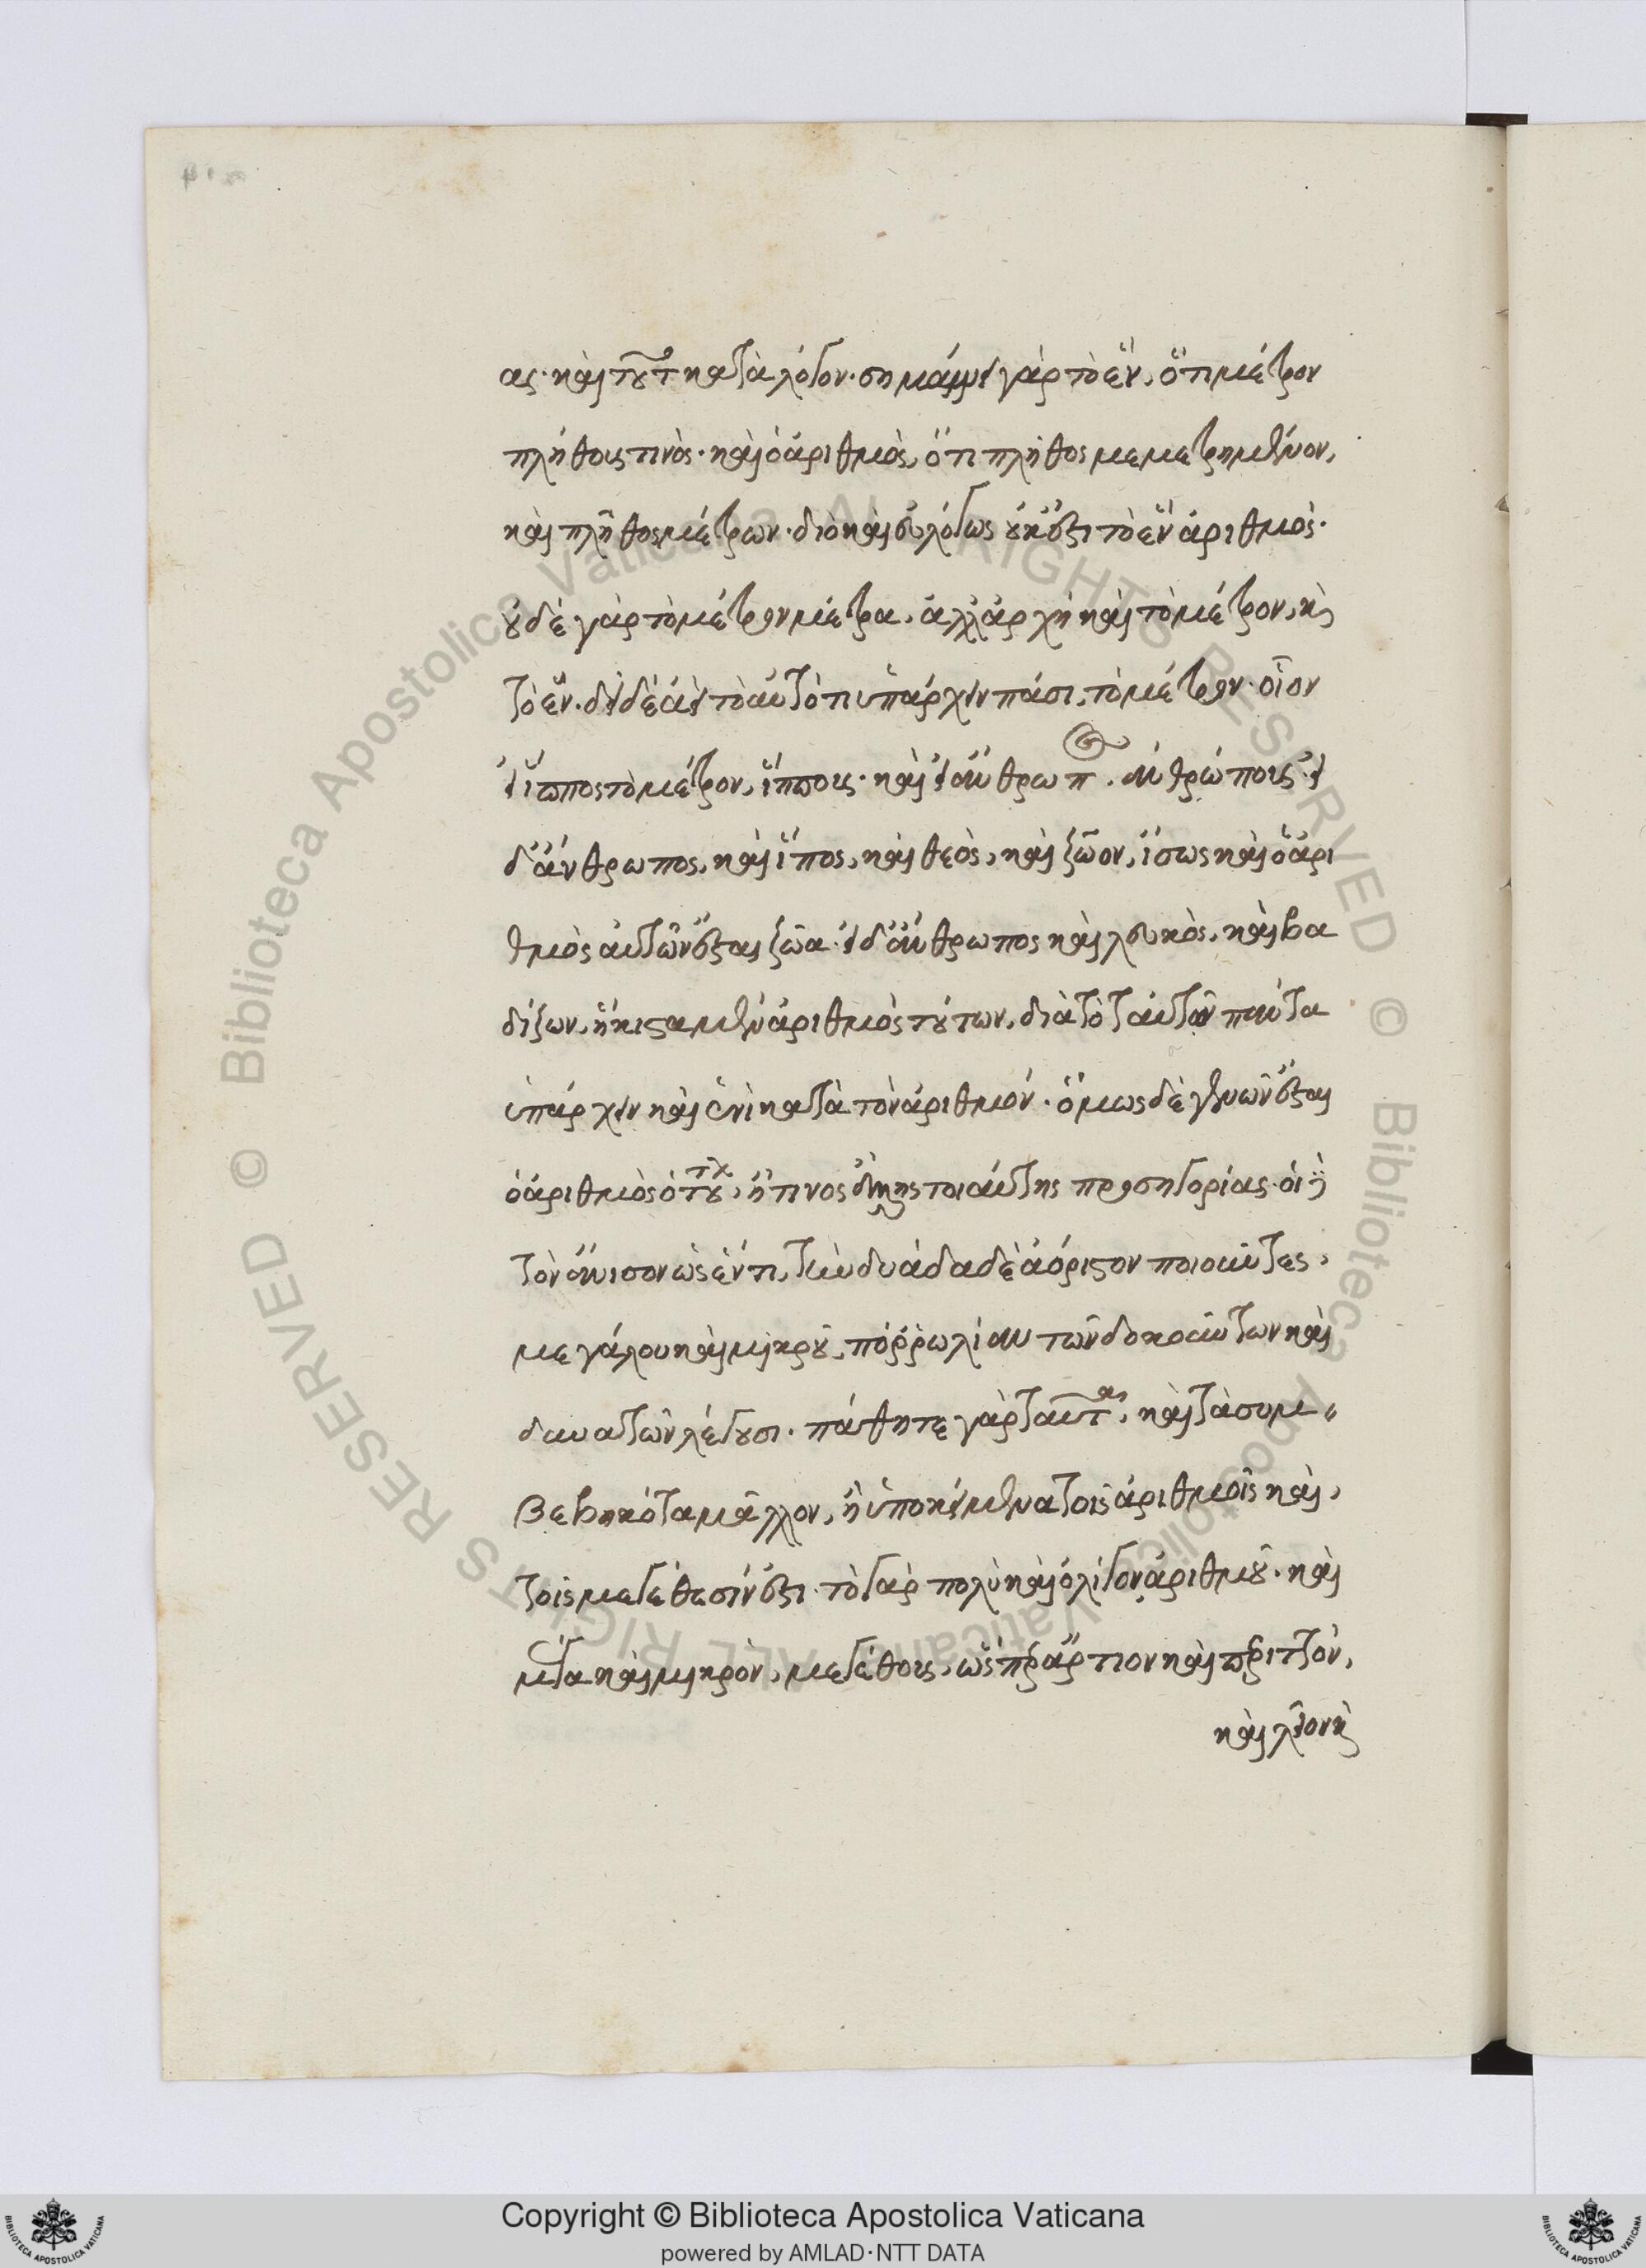 ας· καὶ τοῦτο κατὰ λόγον· σημαίνει γὰρ τὸ ἓν, ὅτι μέτρον
πλήθους τινὸς· καὶ ὁ ἀριθμὸς, ὅτι πλῆθος μεμετρημένον,
καὶ πλῆθος μέτρων· διὸ καὶ εὐλόγως οὐκ ἔστι τὸ ἓν ἀριθμὸς·
οὐδὲ γὰρ τὸ μέτρον μέτρα, ἀλλ' ἀρχὴ καὶ τὸ μέτρον, καὶ
τὸ ἓν. δεῖ δὲ ἀεὶ τὸ αὐτό τι ὑπάρχειν πᾶσι, τὸ μέτρον· οἷον
εἰ ἵππος τὸ μέτρον, ἵππους· καὶ εἰ ἄνθρωπος, ἀνθρώπους· εἰ
δ' ἄνθρωπος, καὶ ἵπος, καὶ θεὸς, καὶ ζῶον, ἴσως καὶ ὁ ἀρι
θμὸς αὐτῶν ἔσται ζῶα· εἰ δ' ἄνθρωπος καὶ λευκὸς, καὶ βα
δίζων, ἥκιστα μὲν ἀριθμὸς τούτων, διὰ τὸ ταὐτῶν πάντα
ὑπάρχειν καὶ ἑνὶ κατὰ τὸν ἀριθμόν· ὅμως δὲ γενῶν ἔσται
ὁ ἀριθμὸς ὁ τούτων, ἤ τινος ἄλλης τοιαύτης προσηγορίας· οἱ δὲ
τὸν ἄνισον ὡς ἕν τι, τὴν δυάδα δὲ ἀόριστον ποιοῦντες,
μεγάλου καὶ μικροῦ, πόρρω λίαν τῶν δοκούντων καὶ
δυνατῶν λέγουσι· πάθη τε γὰρ ταῦτα, καὶ τὰ συμ
βεβηκότα μᾶλλον, ἢ ὑποκείμενα τοῖς ἀριθμοῖς καὶ,
τοῖς μεγέθεσίν ἔστι· τὸ γὰρ πολὺ καὶ ὀλίγον ἀριθμοῦ· καὶ
μέγα καὶ μικρὸν, μεγέθους, ὥσπερ ἄρτιον καὶ περιττὸν,
καὶ λεῖον καὶ
Copyright © Biblioteca Apostolica Vaticana
powered by AMLAD·NTT DATA